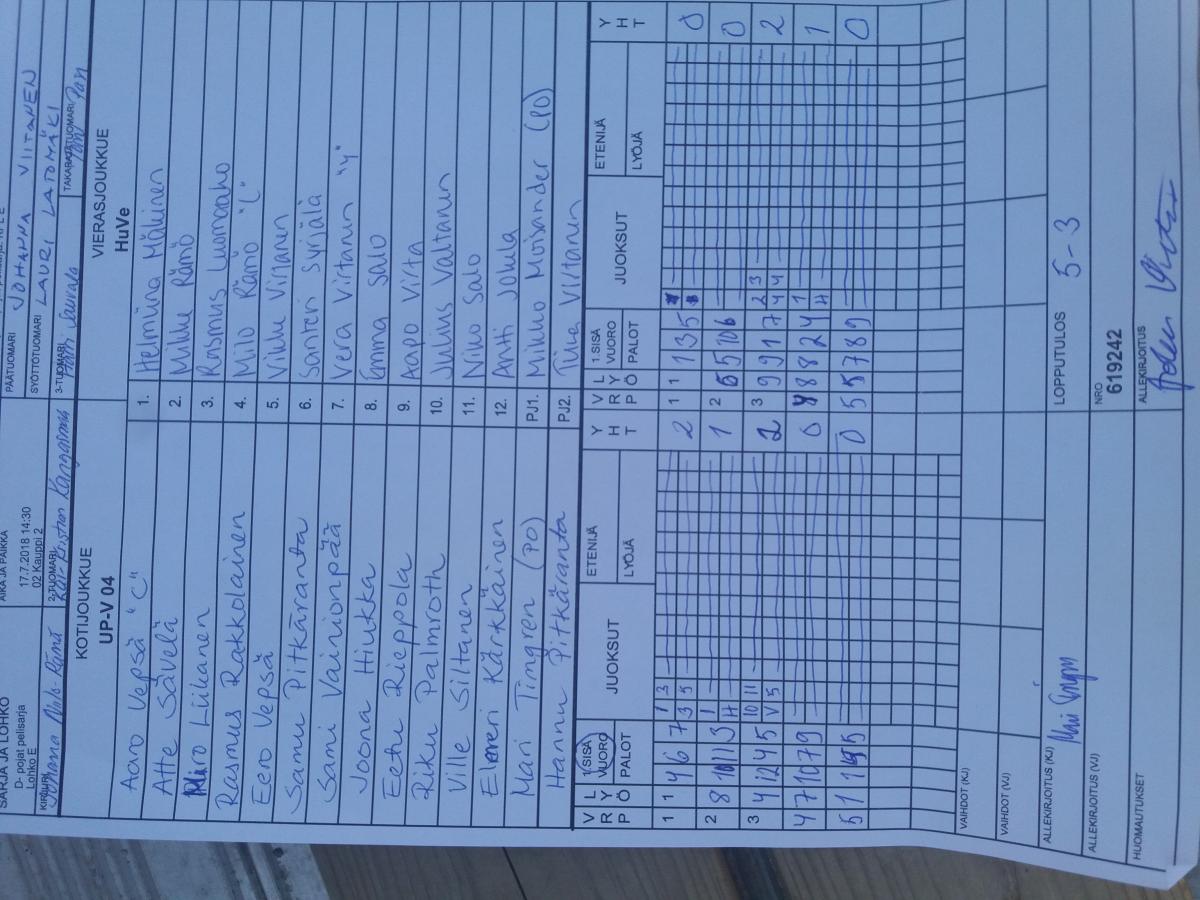 SARJA JA LOHKO
D- pojat pelisarja
Lohko E
AIKA JA PAIKKA
17.7.2018 14:30
02 Kauppi 2
PÄÄTUOMARI JOHANNA VIITANEN
SYÖTTÖTUOMARI LAURI LATOMÄKI
2-TUOMARI
3-TUOMARI
KOTIJOUKKUE
UP-V 04
VIERASJOUKKUE
HuVe
Aaro Vepsä "C" 1. Helmiina Mäkinen
Atte Sävelä 2. Mikke Rämö
Liikanen 3. Rasmus Luomaraho
Rasmus Rakkolainen 4. Milo Rämö "C"
Eero Vepsä 5. Vikke Virtanen
Samu Pitkäranta 6. Santeri Syrjälä
Sami Vainionpää 7. Vera Virtanen "Y"
Joona Hiukka 8. Emma Salo
Eetu Rieppola 9. Aapo Virta
Riku Palmroth 10. Julius Valtanen
Ville Siltanen 11. Niko Salo
Kärkkäinen 12. Antti Jokela
Mari Tingren (PO) PJ1. Mikko Moisander (PO)
Hannu Pitkäranta PJ2. Tiina Virtanen
VRP LYÖ 1.SISÄ VUORO PALOT JUOKSUT ETENIJÄ LYÖJÄ YHT
VRP LYÖ 1.SISÄ VUORO PALOT JUOKSUT ETENIJÄ LYÖJÄ YHT
1 1 4 6 7 1 3 3 5 2
1 1 1 3 5 0
2 8 1 H 1
2 5 0
3 4 12 4 5 10 11 V 5 2
3 9 9 1 7 2 3 4 4 2
4 7 10 7 9 0
8 8 2 4 1 H 1
5 0
5 5 7 8 9 0
VAIHDOT (KJ)
VAIHDOT (VJ)
ALLEKIRJOITUS (KJ)
LOPPUTULOS 5-3
ALLEKIRJOITUS (VJ)
NRO
619242
HUOMAUTUKSET
ALLEKIRJOITUS